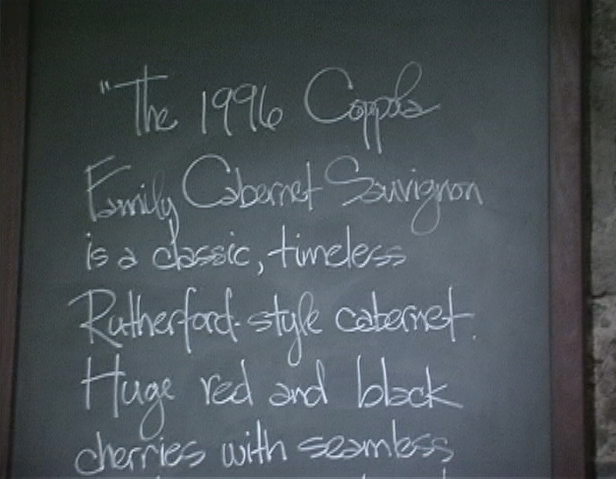 "The 1996 Coppola
Family Cabernet Sauvignon
is a classic, timeless
Rutherford-style cabernet.
Huge red and black
cherries with seamless